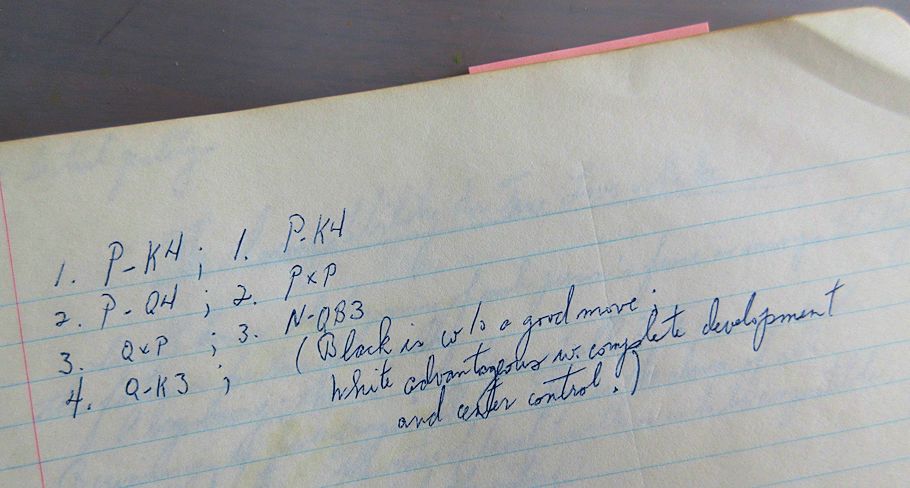 1. P-K4 ; 1. P-K4
2. P-Q4 ; 2. PxP
3. QxP ; 3. N-QB3
4. Q-K3 ; (Black is w/o a good move;
White advantageous w. complete development
and center control.)